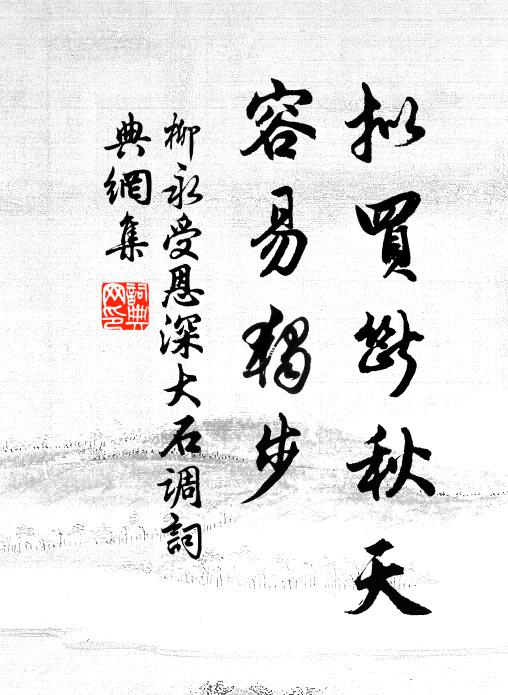 拟買斷秋天
容易獨步
柳永受恩深大石调詞
典網集
詞典
网印